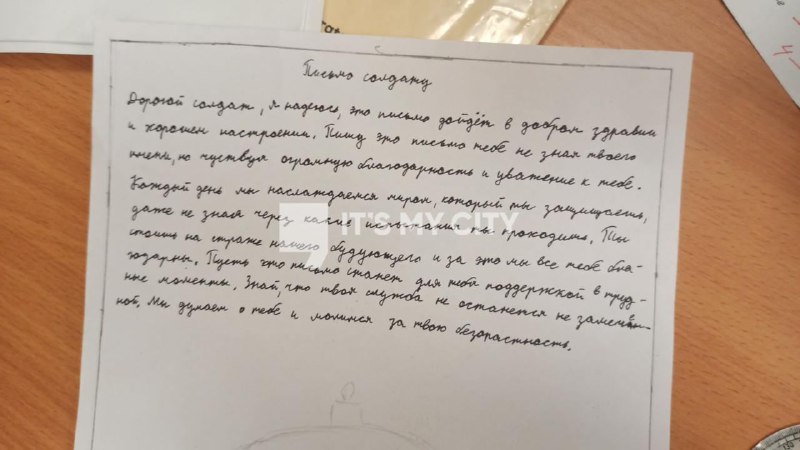 Письмо солдату
Дорогой солдат, я надеюсь, это письмо дойдёт в добром здравии
и хорошем настроении. Пишу это письмо тебе не зная твоего
имени, но чуствуя огромную благодарность и уважение к тебе.
Каждый день мы наслаждаемся миром, который ты защищаешь,
даже не зная через какие испытания ты проходишь. Ты
стоишь на страже нашего будующего и за это мы все тебе бла-
годарны. Пусть это письмо станет для тебя поддержкой в труд-
ные моменты. Знай, что твоя служба не останется не замечен-
ной. Мы думаем о тебе и молимся за твою безопастность.
IT'S MY CITY